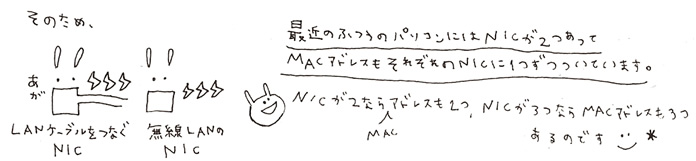 そのため、
あが
LANケーブルをつなぐ
NIC
無線LANの
NIC
最近のふつうのパソコンにはNICが2つあって
MACアドレスもそれぞれのNICに1つずつついています。
NICが2つならアドレスも2つ、NICが3つならMACアドレスも3つ
MAC
あるのです